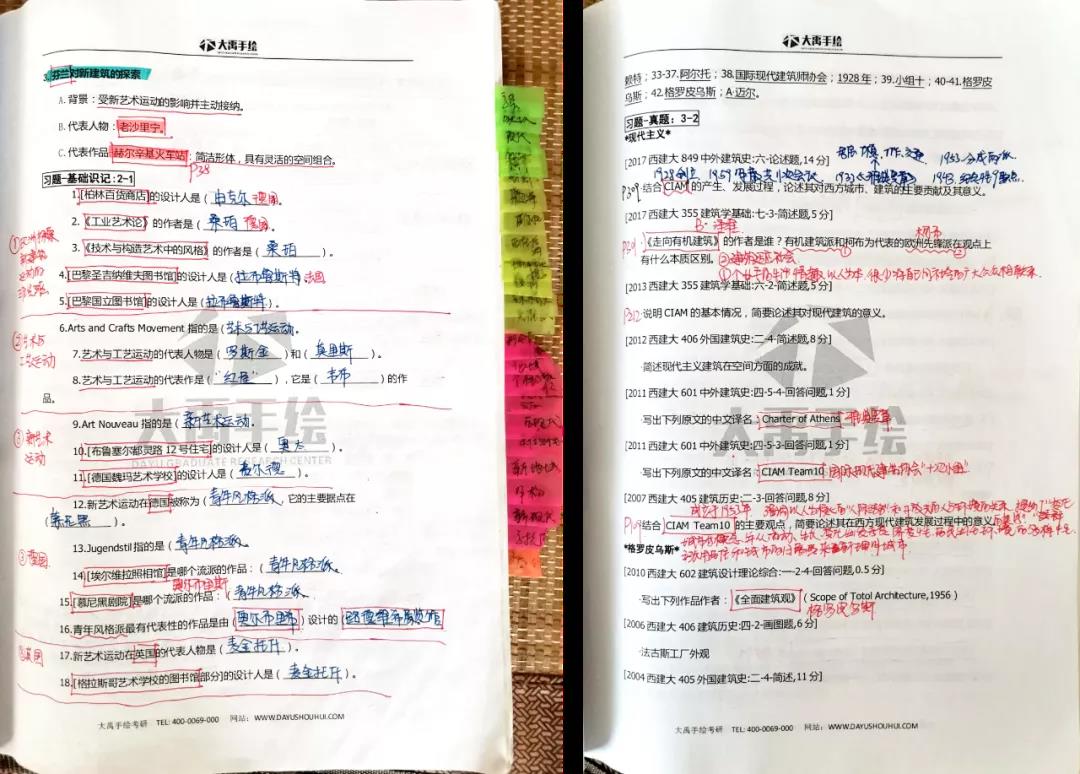 大禹手绘
3.芬兰对新建筑的探索
A.背景：受新艺术运动的影响并主动接纳。
B.代表人物：老沙里宁。
C.代表作品：赫尔辛基火车站：简洁形体，具有灵活的空间组合。
P38
习题-基础识记：2-1
1.[柏林百货商店]的设计人是（ 由克尔 ）德国.
2.《工业艺术论》的作者是（ 桑珀 ）德国.
3.《技术与构造艺术中的风格》的作者是（ 桑珀 ）。
4.[巴黎圣吉纳维夫图书馆]的设计人是（ 拉布鲁斯特 ）法国
5.[巴黎国立图书馆]的设计人是（ 拉布鲁斯特 ）。
6.Arts and Crafts Movement 指的是（ 艺术与工艺运动.
②艺术与
工艺运动
7.艺术与工艺运动的代表人物是（ 罗斯金 ）和（ 莫里斯 ）。
8.艺术与工艺运动的代表作是（ "红屋" ），它是（ 韦布 ）的作
品。
9.Art Nouveau 指的是（ 新艺术运动.
③新艺术
运动
10.[布鲁塞尔都灵路 12 号住宅]的设计人是（ 奥太 ）。
11.[德国魏玛艺术学校]的设计人是（ 费尔德 ）。
12.新艺术运动在德国被称为（ 青年风格派 ），它的主要据点在
（ 慕尼黑 ）。
13.Jugendstil 指的是（ 青年风格派.
14.[埃尔维拉照相馆]是哪个流派的作品：（ 青年风格派.
15.[慕尼黑剧院]是哪个流派的作品：（ 青年风格派.
16.青年风格派最有代表性的作品是由（ 奥尔布里希 ）设计的（ 路德维希展览馆
17.新艺术运动在英国的代表人物是（ 麦金托什 ）。
18.[格拉斯哥艺术学校的图书馆部分]的设计人是（ 麦金托什 ）。
大禹手绘考研 TEL: 400-0069-000 网站：WWW.DAYUSHOUHUI.COM
大禹手绘
DAYU GRADUATE RESEARCH CENTER
大禹手绘
赖特；33-37.阿尔托；38.国际现代建筑师协会；1928 年；39.小组十；40-41.格罗皮
乌斯；42.格罗皮乌斯；A·迈尔。
习题-真题：3-2
*现代主义*
[2017 西建大 849 中外建筑史:六-论述题,14 分]
·结合 CIAM 的产生、发展过程，论述其对西方城市、建筑的主要贡献及其意义。
[2017 西建大 355 建筑学基础:七-3-简述题,5 分]
《走向有机建筑》的作者是谁？有机建筑派和柯布为代表的欧洲先锋派在观点上
有什么本质区别。
[2013 西建大 355 建筑学基础:六-2-简述题,5 分]
P212·说明 CIAM 的基本情况，简要论述其对现代建筑的意义。
[2012 西建大 406 外国建筑史:二-4-简述题,8 分]
·简述现代主义建筑在空间方面的成就。
[2011 西建大 601 中外建筑史:四-5-4-回答问题,1 分]
·写出下列原文的中文译名：Charter of Athens 雅典宪章
[2011 西建大 601 中外建筑史:四-5-3-回答问题,1 分]
·写出下列原文的中文译名：CIAM Team10 国际现代建筑协会"十次小组"
[2007 西建大 405 建筑历史:二-3-回答问题,8 分]
·结合 CIAM Team10 的主要观点，简要论述其在西方现代建筑发展过程中的意义
*格罗皮乌斯*
[2010 西建大 602 建筑设计理论综合:一-2-4-回答问题,0.5 分]
·写出下列作品作者：《全面建筑观》（Scope of Totol Architecture,1956）
格罗皮乌斯
[2006 西建大 406 建筑历史:四-2-画图题,6 分]
·法古斯工厂外观
[2004 西建大 405 外国建筑史:二-4-简述,11 分]
大禹手绘考研 TEL: 400-0069-000 网站：WWW.DAYUSHOUHUI.COM
大禹手绘